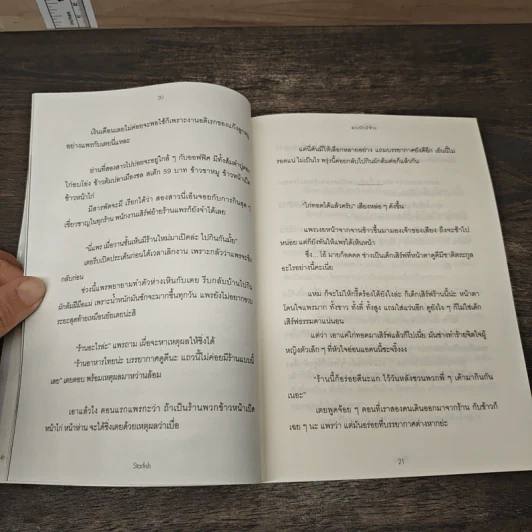 20
เงินเดือนเลยไม่ค่อยจะพอใช้ก็เพราะงานอดิเรกของแก๊งลูกหมู
อย่างแพรกับเตยนี่แหละ
ย่านที่สองสาวไปบ่อยจะอยู่ใกล้ ๆ กับออฟฟิศ มีทั้งส้มตำปูปลา
ไก่อบโอ่ง ข้าวต้มปลาเมืองชล สเต๊ก 59 บาท ข้าวขาหมู ข้าวหน้าเป็ด
ข้าวหน้าไก่
มีสารพัดจะมี เรียกได้ว่า สองสาวนี่เอ็นจอยกับการกินสุด ๆ
เชี่ยวชาญในทุกร้าน พนักงานเสิร์ฟย่อร้านแพรก็ยังจำได้เลย
"นี่แพร เมื่อวานชั้นเห็นมีร้านใหม่มาเปิดล่ะ ไปกินกันมั้ย"
เตยรีบเปิดประเด็นก่อนได้เวลาเลิกงาน เพราะกลัวว่าแพรจะชิ่ง
กลับก่อน
ช่วงนี้แพรพยายามทำตัวห่างเหินกับเตย รีบกลับบ้านไปกิน
ผักต้มฝีมือแม่ เพราะน้ำหนักมันชักจะมากขึ้นทุกวัน แพรยังไม่อยากขอบ
ระยะสุดท้ายเหมือนยัยเตยน่ะสิ
"ร้านอะไรล่ะ" แพรถาม เผื่อจะหาเหตุผลให้ชิ่งได้
"ร้านอาหารไทยน่ะ บรรยากาศดูดีนะ แถวนี้ไม่ค่อยมีร้านแบบนี้
เลย" เตยตอบ พร้อมเหตุผลมาหว่านล้อม
เอาแล้วไง ตอนแรกแพรกะว่า ถ้าเป็นร้านพวกข้าวหน้าเป็ด
หน้าไก่ หน้าห่าน จะได้ชิ่งเตยด้วยเหตุผลว่าเบื่อ
Starfish
แต่นี่ดันมีให้เลือกหลายอย่าง แถมบรรยากาศยังดีอีก เย็นนี้ไม่
รอดแน่ ไม่เป็นไร พรุ่งนี้ค่อยกลับไปกินผักต้มต่อก็แล้วกัน
"ไก่ทอดได้แล้วครับ" เสียงหล่อ ๆ ดังขึ้น
แพรเงยหน้าจากจานข้าวขึ้นมามองเจ้าของเสียง ถึงจะช้าไป
หน่อย แต่ก็ยังทันให้แพรได้เห็นหน้า
ซึ่ง...โอ้ มายก๊อดดด ช่างเป็นเด็กเสิร์ฟที่หน้าตาดูดีมีชาติตระกูล
อะไรอย่างนี้คะเนี่ย
แหม ก็จะไม่ให้กรี๊ดร้องได้ยังไงล่ะ ก็เด็กเสิร์ฟร้านนี้น่ะ หน้าตา
โดนใจแพรมาก ทั้งขาว ทั้งตี๋ ทั้งสูง แถมใส่แว่นอีก ดูยังไง ๆ ก็ไม่ใช่เด็ก
เสิร์ฟธรรมดาแน่นอน
แต่ว่า เอาแค่ไก่ทอดมาเสิร์ฟแล้วก็ไปเนี่ย มันช่างทำร้ายจิตใจผู้
หญิงตัวเล็ก ๆ ที่หัวใจอ่อนแอคนนี้ซะจริงงง
"ร้านนี้ก็อร่อยดีนะแก ไว้วันหลังชวนพวกพี่ ๆ เค้ามากินกัน
เนอะ"
เตยพูดจ้อย ๆ ตอนที่เราสองคนเดินออกมาจากร้าน กับข้าวก็
เฉย ๆ นะ แพรว่า แต่มันอร่อยที่บรรยากาศต่างหากย่ะ
21